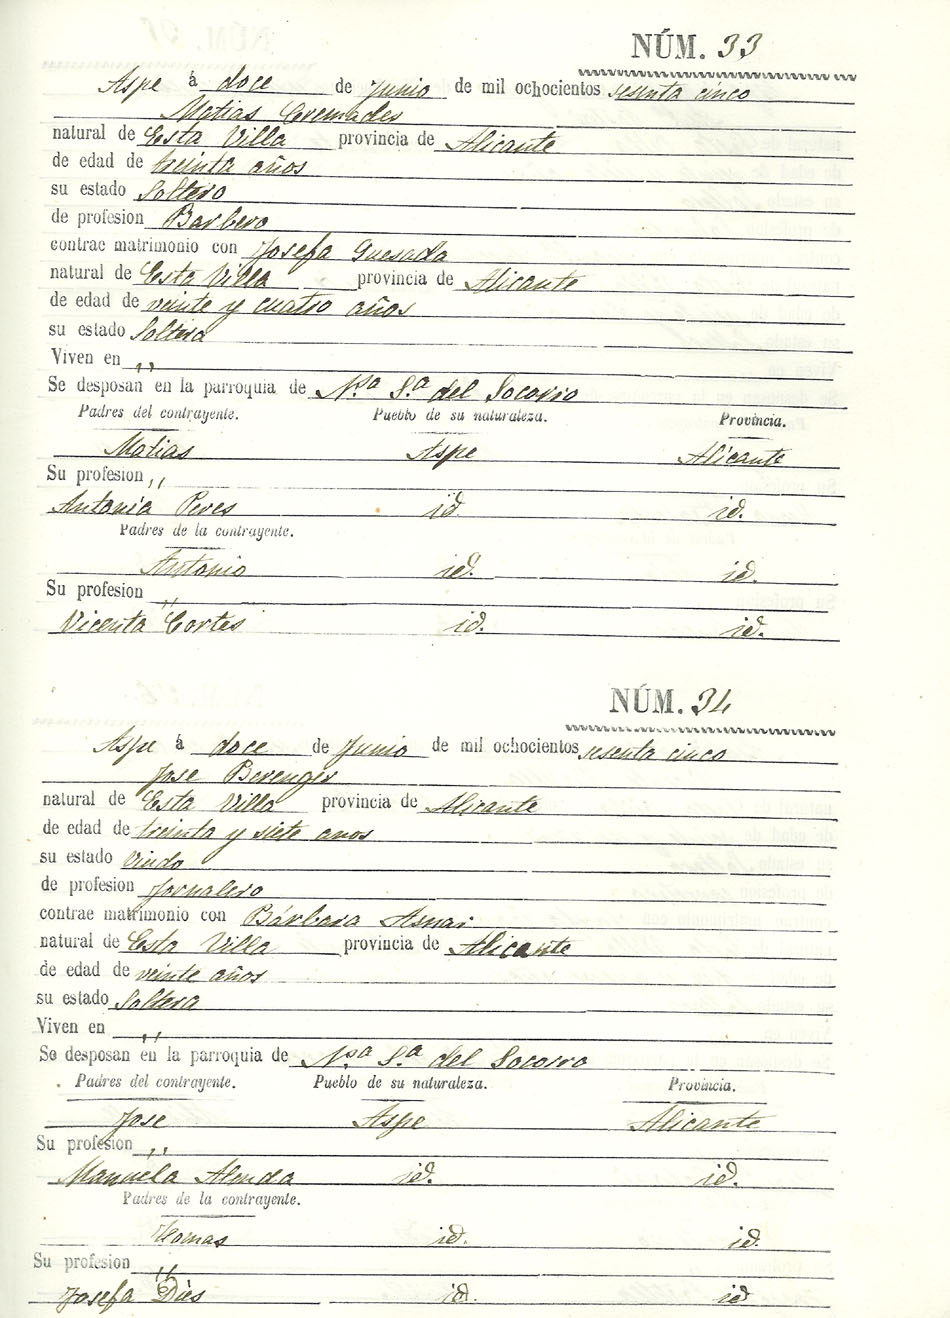 NÚM. 33
Aspe á doce de Junio de mil ochocientos sesenta cinco
Matias Cremades
natural de Esta Villa provincia de Alicante
de edad de treinta años
su estado Soltero
de profesion Barbero
contrae matrimonio con Josefa Quesada
natural de Esta Villa provincia de Alicante
de edad de veinte y cuatro años
su estado Soltera
Viven en ,,
Se desposan en la parroquia de N.sa S.a del Socorro
Padres del contrayente. Pueblo de su naturaleza. Provincia.
Matias Aspe Alicante
Su profesion ,,
Antonia Peres id. id.
Padres de la contrayente.
Antonio id. id.
Su profesion ,,
Vicenta Cortes id. id.
NÚM. 34
Aspe á doce de Junio de mil ochocientos sesenta cinco
Jose Berenger
natural de Esta Villa provincia de Alicante
de edad de treinta y siete anos
su estado Viudo
de profesion Jornalero
contrae matrimonio con Bárbara Asnar
natural de Esta Villa provincia de Alicante
de edad de veinte años
su estado Soltera
Viven en ,,
Se desposan en la parroquia de N.sa S.a del Socorro
Padres del contrayente. Pueblo de su naturaleza. Provincia.
Jose Aspe Alicante
Su profesion ,,
Manuela Alenda id. id.
Padres de la contrayente.
Tomas id. id.
Su profesion ,,
Josefa Dies id. id